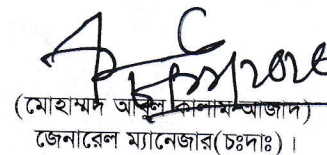 (মোহাম্মদ আবুল কালাম আজাদ)
জেনারেল ম্যানেজার(চঃদাঃ)।